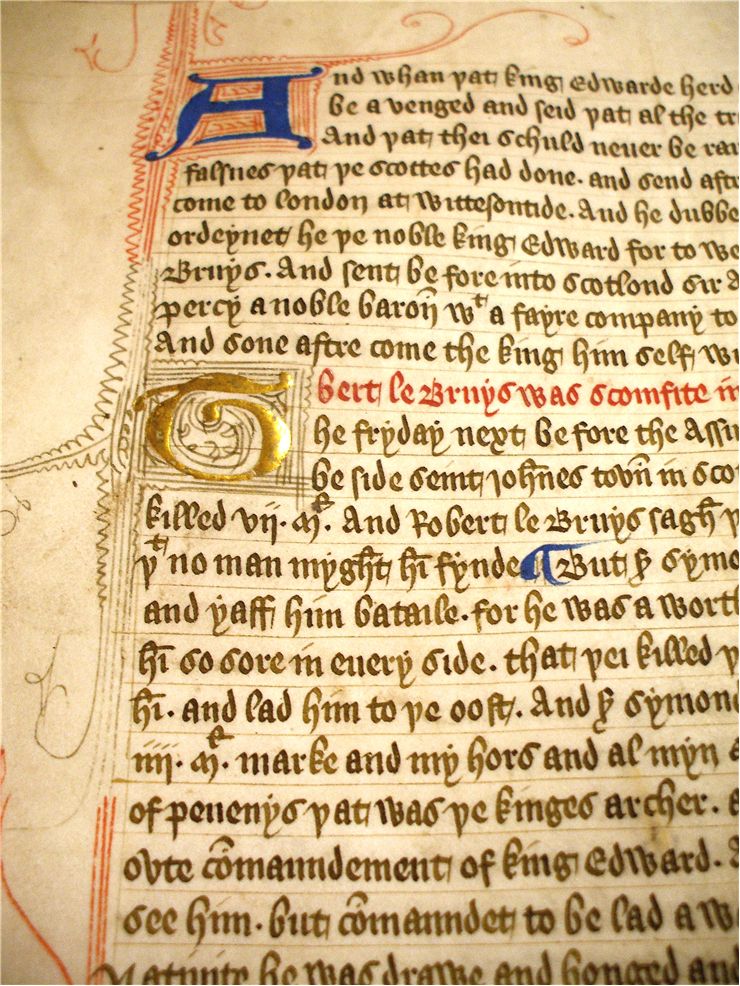 And whan þat king Edwarde herd
be a venged and seid þat al the tr
And þat thei schuld never be ra
falsnes þat þe scottes had done. and send aftr
come to london at wittesontide. And he dubbe
ordeynet he þe noble king Edward for to we
Bruys. And sent be fore into scotlond sir A
percy a noble baron̄ wᵗ a fayre company to
And sone aftre come the king him self wi
bert le Bruys was scomfite in
The fryday next be fore the Assu
be side seint Joħnes tovn̄ in sco
killed vij. Mˡ. And Robert le Bruys sagħ þ
þᵗ no man mygħt hī fynde ¶ But symo
and yaff him bataile. for he was a worth
hī so sore in euery side. that þei killed þ
hī. and lad him to þe oost. And symond
iiij. Mˡ. marke and my hors and al myn a
of peuenys þat was þe kinges archer. a
ovte cōmaundement of king Edward. A
see him. but cōmaundet to be lad a w
Natiuite he was drawe and honged and